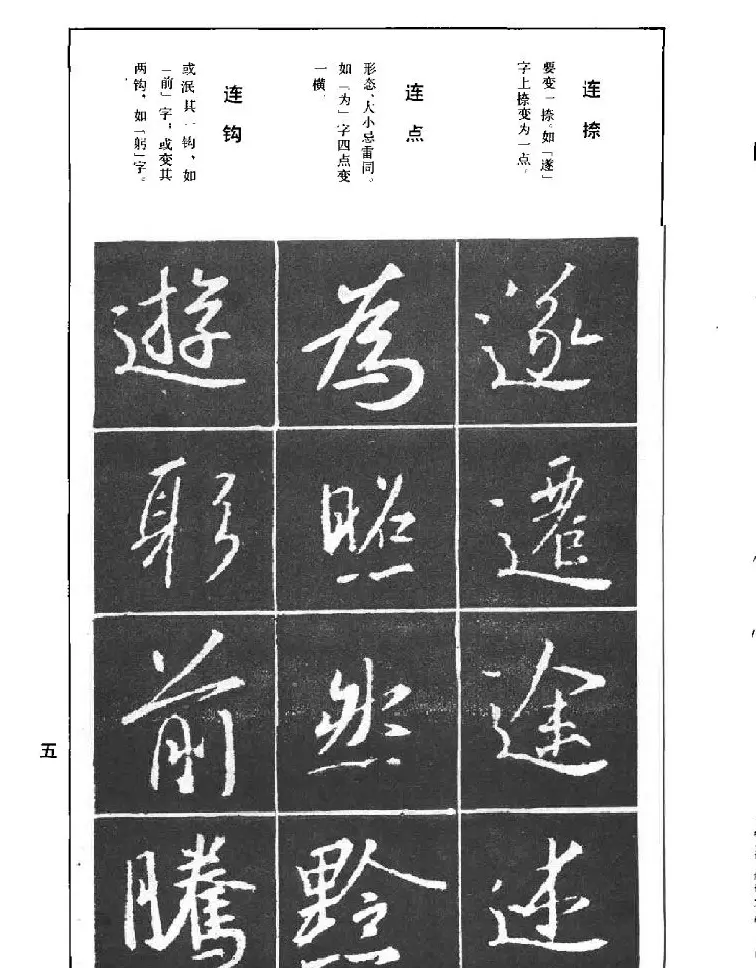 连捺
要变一捺。如「遂」
字上捺变为一点。
连点
形态、大小忌雷同。
如「为」字四点变
一横。
连钩
或泯其一钩，如
「前」字；或变其
两钩，如「躬」字。
遂
遷
途
述
為
照
然
黔
遊
躬
前
騰
五